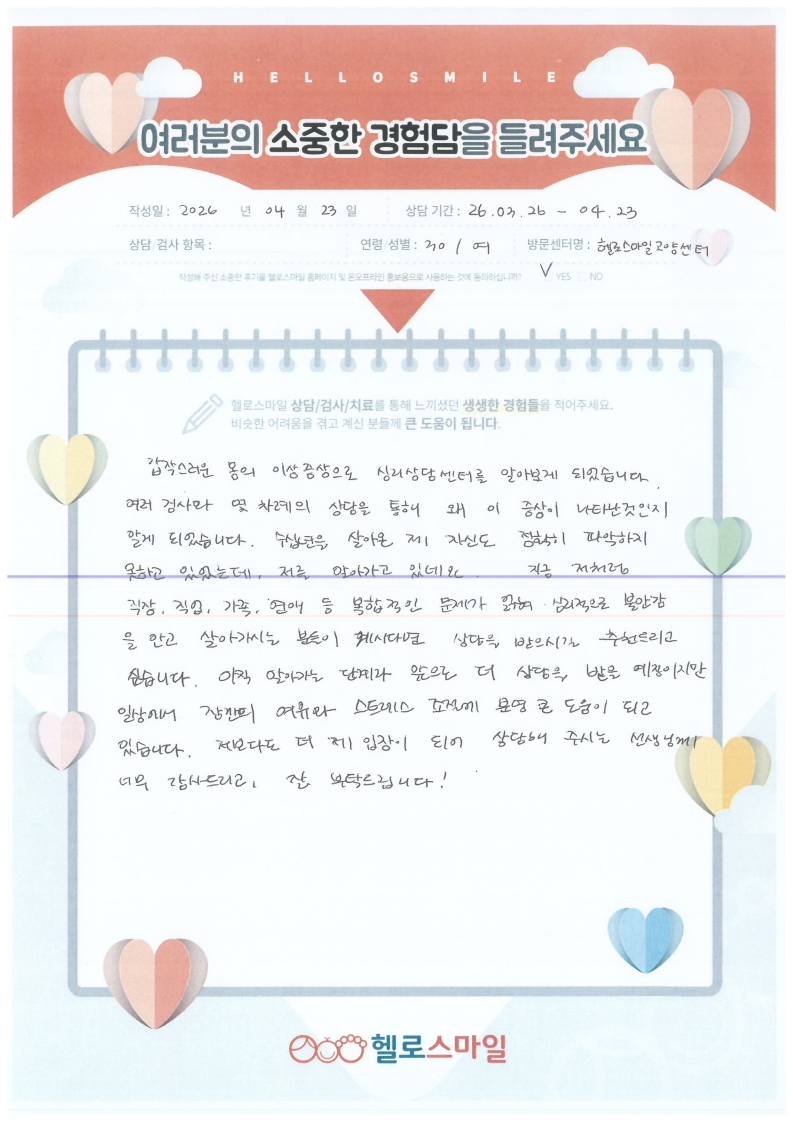 HELLOSMILE
여러분의 소중한 경험담을 들려주세요
작성일 : 2026 년 04 월 23 일 상담 기간 : 26.03.26 - 04.23
상담/검사 항목 : 연령/성별 : 30 / 여 방문센터명 : 헬로스마일고양센터
작성해 주신 소중한 후기를 헬로스마일 홈페이지 및 온오프라인 홍보용으로 사용하는 것에 동의하십니까? V YES NO
헬로스마일 상담/검사/치료를 통해 느끼셨던 생생한 경험들을 적어주세요.
비슷한 어려움을 겪고 계신 분들께 큰 도움이 됩니다.
갑작스러운 몸의 이상증상으로 심리상담센터를 알아보게 되었습니다.
여러 검사와 몇 차례의 상담을 통해 왜 이 증상이 나타난것인지
알게 되었습니다. 수십년을 살아온 제 자신도 정확히 파악하지
못하고 있었는데, 저를 알아가고 있네요. 지금 저처럼
직장, 직업, 가족, 연애 등 복합적인 문제가 얽혀 심리적으로 불안감
을 안고 살아가시는 분들이 계시다면 상담을 받으시길 추천드리고
싶습니다. 아직 알아가는 단계라 앞으로 더 상담을 받을 예정이지만
일상에서 잠깐의 여유와 스트레스 조절에 분명 큰 도움이 되고
있습니다. 저보다도 더 제 입장이 되어 상담해 주시는 선생님께
너무 감사드리고, 잘 부탁드립니다!
헬로스마일